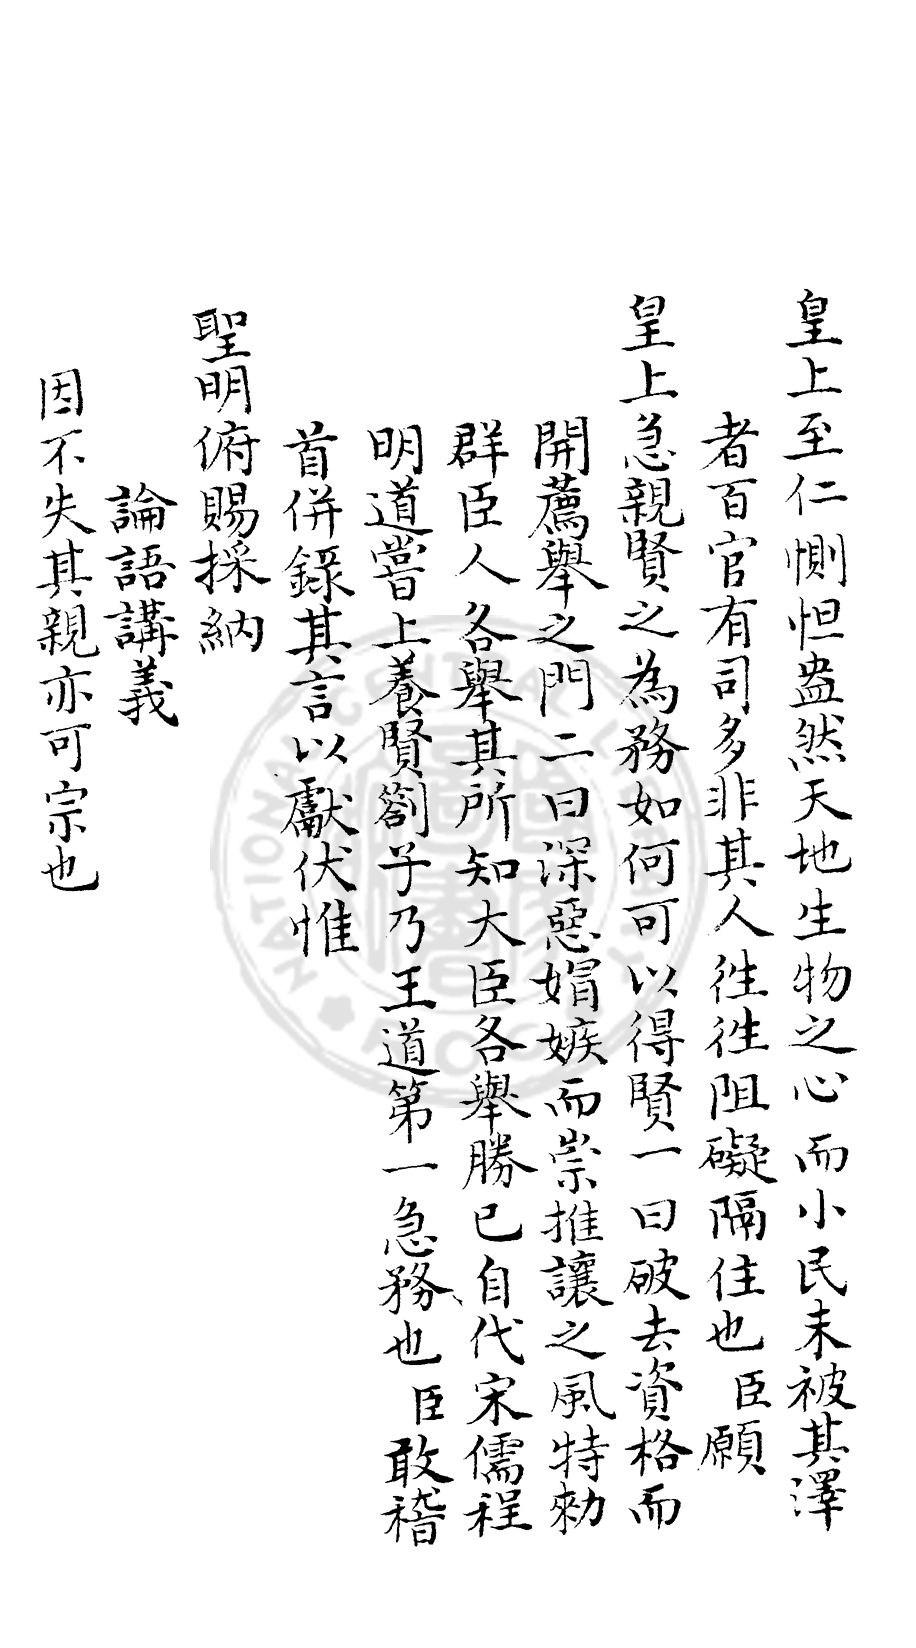 皇上至仁惻怛盎然天地生物之心而小民未被其澤
者百官有司多非其人徃徃阻礙隔住也臣願
皇上急親賢之為務如何可以得賢一曰破去資格而
開薦舉之門二曰深惡媢嫉而崇推讓之風特勑
群臣人各舉其所知大臣各舉勝已自代宋儒程
明道嘗上養賢劄子乃王道第一急務也臣敢稽
首併錄其言以獻伏惟
聖明俯賜採納
論語講義
因不失其親亦可宗也
NATIONAL CENTRAL